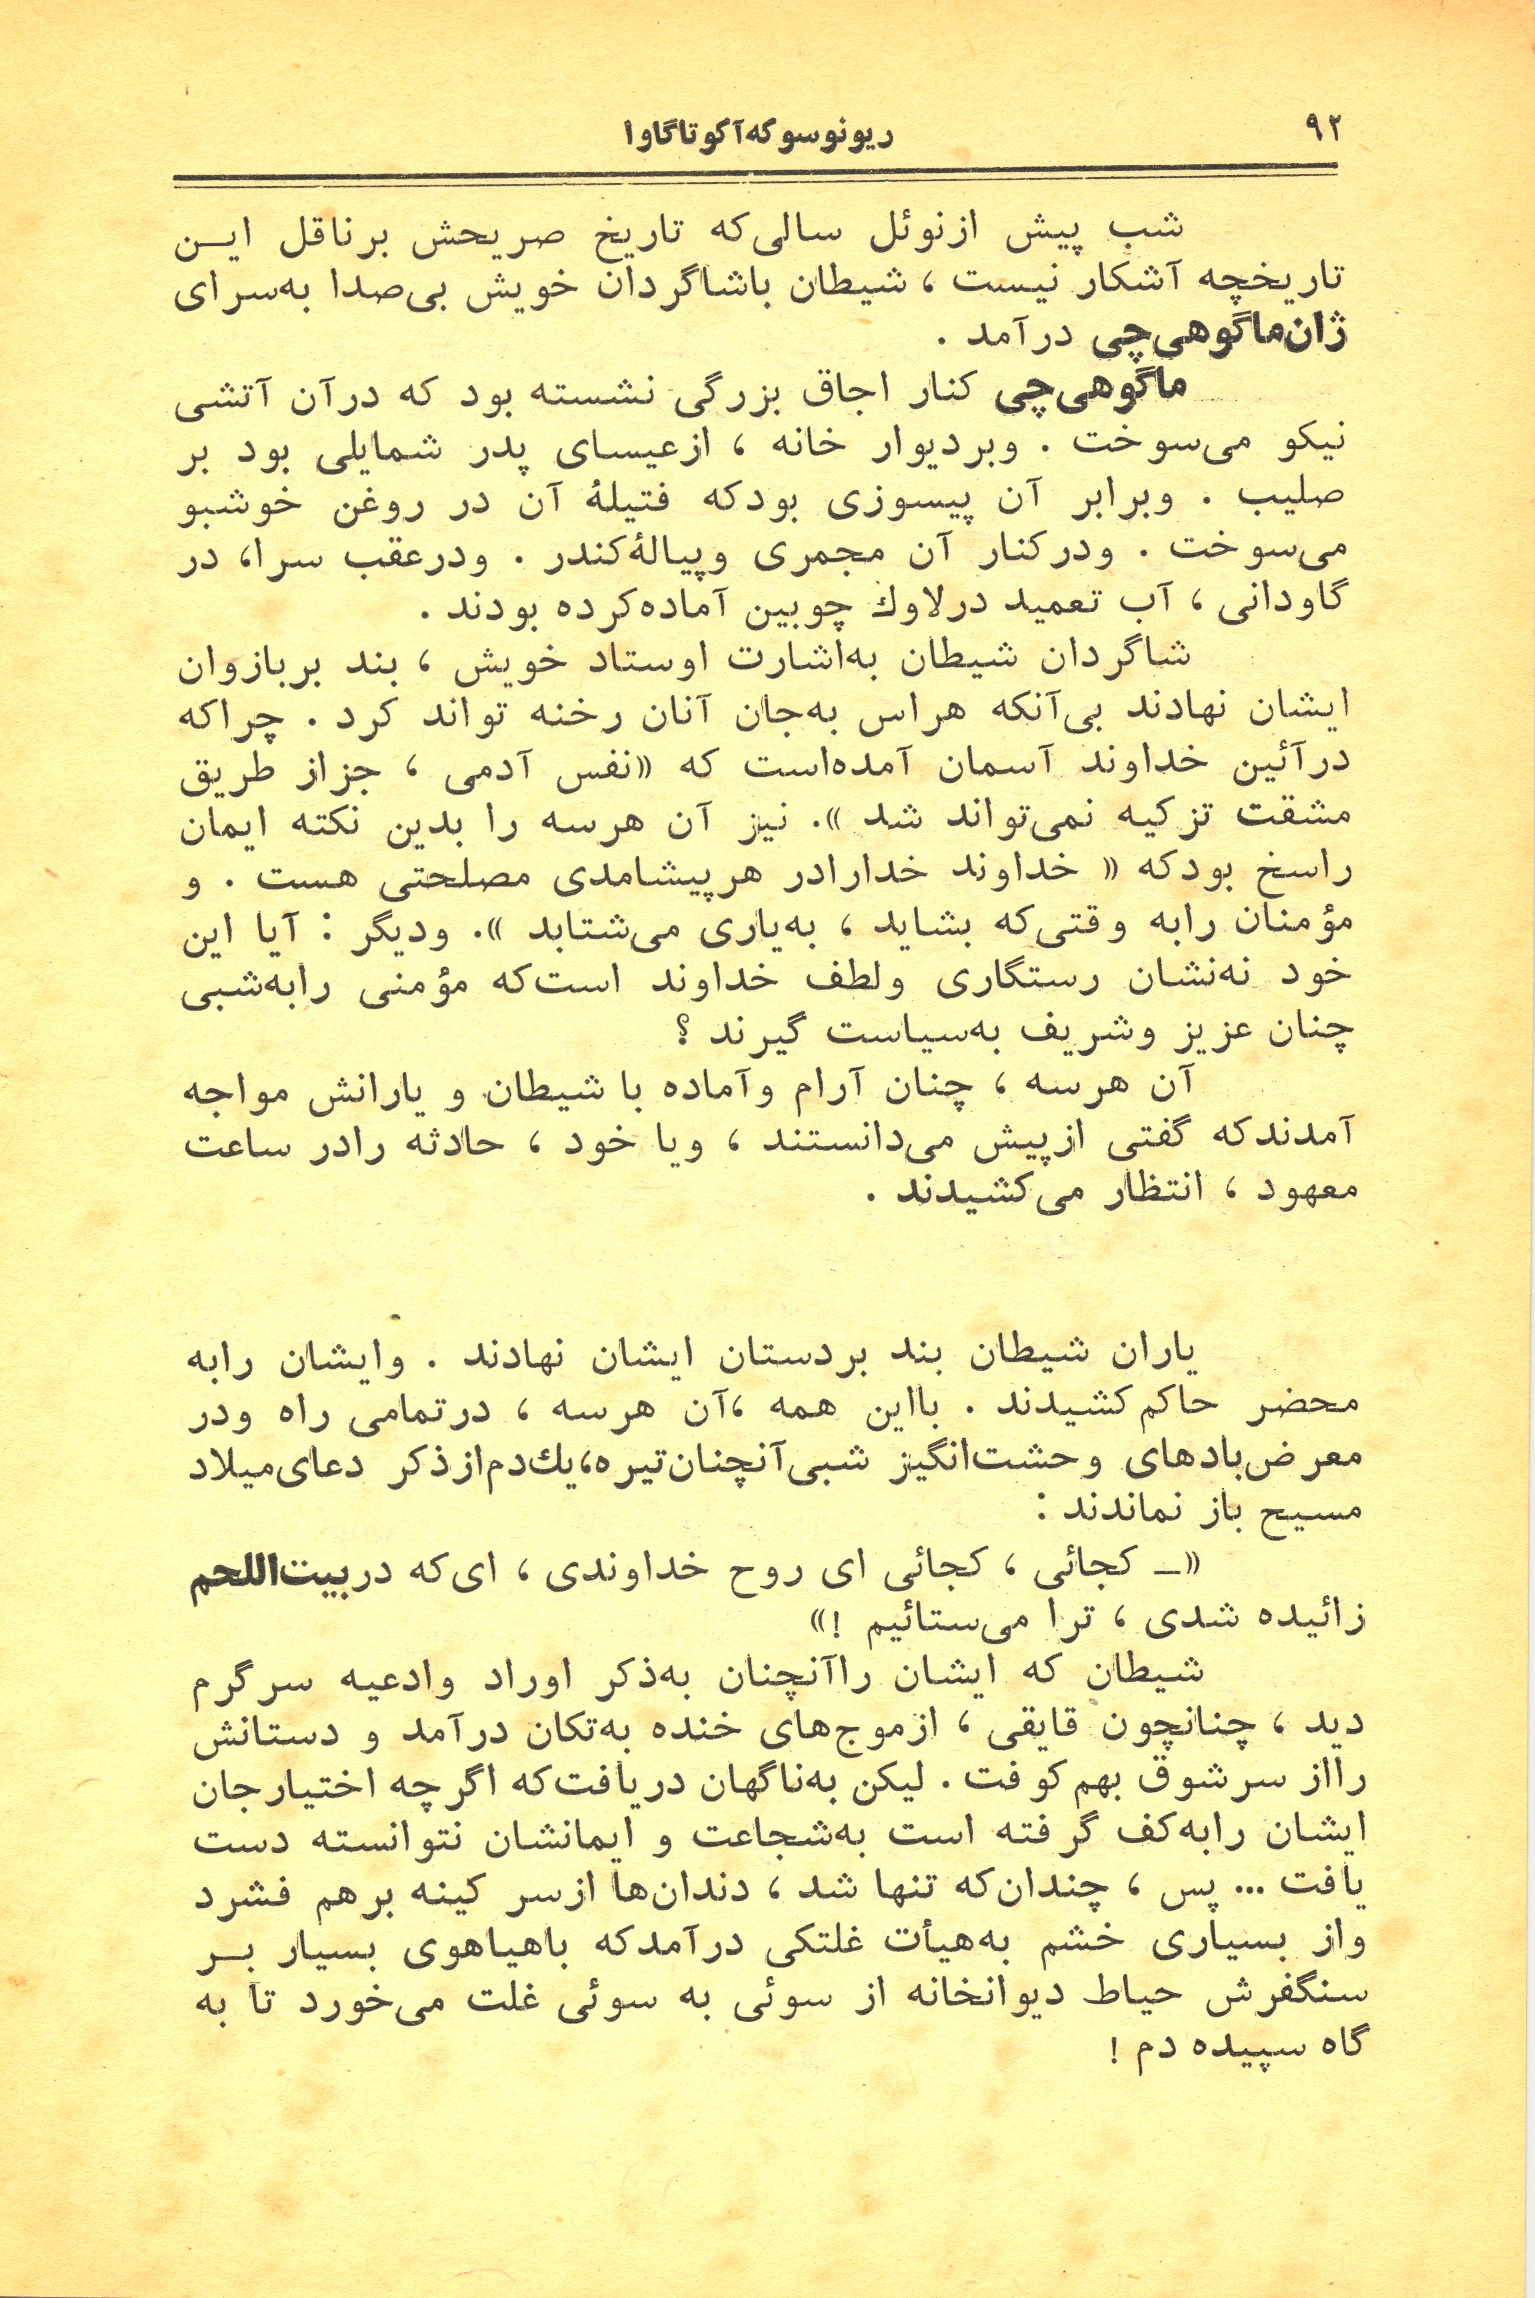 ۹۲
ریونوسوکه‌آکوتاگاوا
شب پیش ازنوئل سالی‌که تاریخ صریحش برناقل ایـن
تاریخچه آشکار نیست ، شیطان باشاگردان خویش بی‌صدا به‌سرای
ژان‌ماگوهی‌چی درآمد .
ماگوهی‌چی کنار اجاق بزرگی نشسته بود که درآن آتشی
نیکو می‌سوخت . وبردیوار خانه ، ازعیسای پدر شمایلی بود بر
صلیب . وبرابر آن پیسوزی بودکه فتیلهٔ آن در روغن خوشبو
می‌سوخت . ودرکنار آن مجمری وپیالهٔ‌کندر . ودرعقب سرا، در
گاودانی ، آب تعمید درلاوك چوبین آماده‌کرده بودند .
شاگردان شیطان به‌اشارت اوستاد خویش ، بند بربازوان
ایشان نهادند بی‌آنکه هراس به‌جان آنان رخنه تواند کرد . چراکه
درآئین خداوند آسمان آمده‌است که «نفس آدمی ، جزاز طریق
مشقت تزکیه نمی‌تواند شد ». نیز آن هرسه را بدین نکته ایمان
راسخ بودکه « خداوند خدارادر هرپیشامدی مصلحتی هست . و
مؤمنان رابه وقتی‌که بشاید ، به‌یاری می‌شتابد ». ودیگر : آیا این
خود نه‌نشان رستگاری ولطف خداوند است‌که مؤمنی رابه‌شبی
چنان عزیز وشریف به‌سیاست گیرند ؟
آن هرسه ، چنان آرام وآماده با شیطان و یارانش مواجه
آمدندکه گفتی ازپیش می‌دانستند ، ویا خود ، حادثه رادر ساعت
معهود ، انتظار می‌کشیدند .
یاران شیطان بند بردستان ایشان نهادند . وایشان رابه
محضر حاکم‌کشیدند . بااین همه ،آن هرسه ، درتمامی راه ودر
معرض‌بادهای وحشت‌انگیز شبی‌آنچنان‌تیره،یك‌دم‌ازذکر دعای‌میلاد
مسیح باز نماندند :
«ـ کجائی ، کجائی ای روح خداوندی ، ای‌که دربیت‌اللحم
زائیده شدی ، ترا می‌ستائیم !»
شیطان که ایشان راآنچنان به‌ذکر اوراد وادعیه سرگرم
دید ، چنانچون قایقی ، ازموج‌های خنده به‌تکان درآمد و دستانش
رااز سرشوق بهم‌کوفت . لیکن به‌ناگهان دریافت‌که اگرچه اختیارجان
ایشان رابه‌کف گرفته است به‌شجاعت و ایمانشان نتوانسته دست
یافت ... پس ، چندان‌که تنها شد ، دندان‌ها ازسر کینه برهم فشرد
واز بسیاری خشم به‌هیأت غلتکی درآمدکه باهیاهوی بسیار بـر
سنگفرش حیاط دیوانخانه از سوئی به سوئی غلت می‌خورد تا به
گاه سپیده دم !